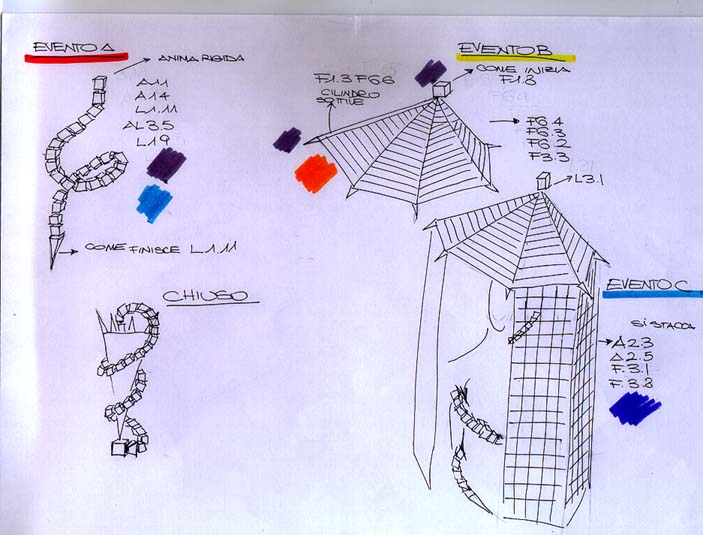 EVENTO A
ANIMA RIGIDA
A11
A14
L1.11
AL3.5
L19
COME FINISCE L1.11
CHIUSO
EVENTO B
COME INIZIA
F1.3
F1.3 F66
CILINDRO
SOTTILE
F6.4
F6.3
F6.2
F3.3
L3.1
EVENTO C
SI STACCA
A2.3
A2.5
F.3.1
F.3.8